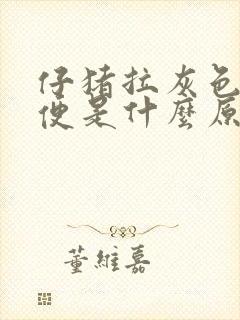 仔猪拉灰色
便是什麼原
董維嘉